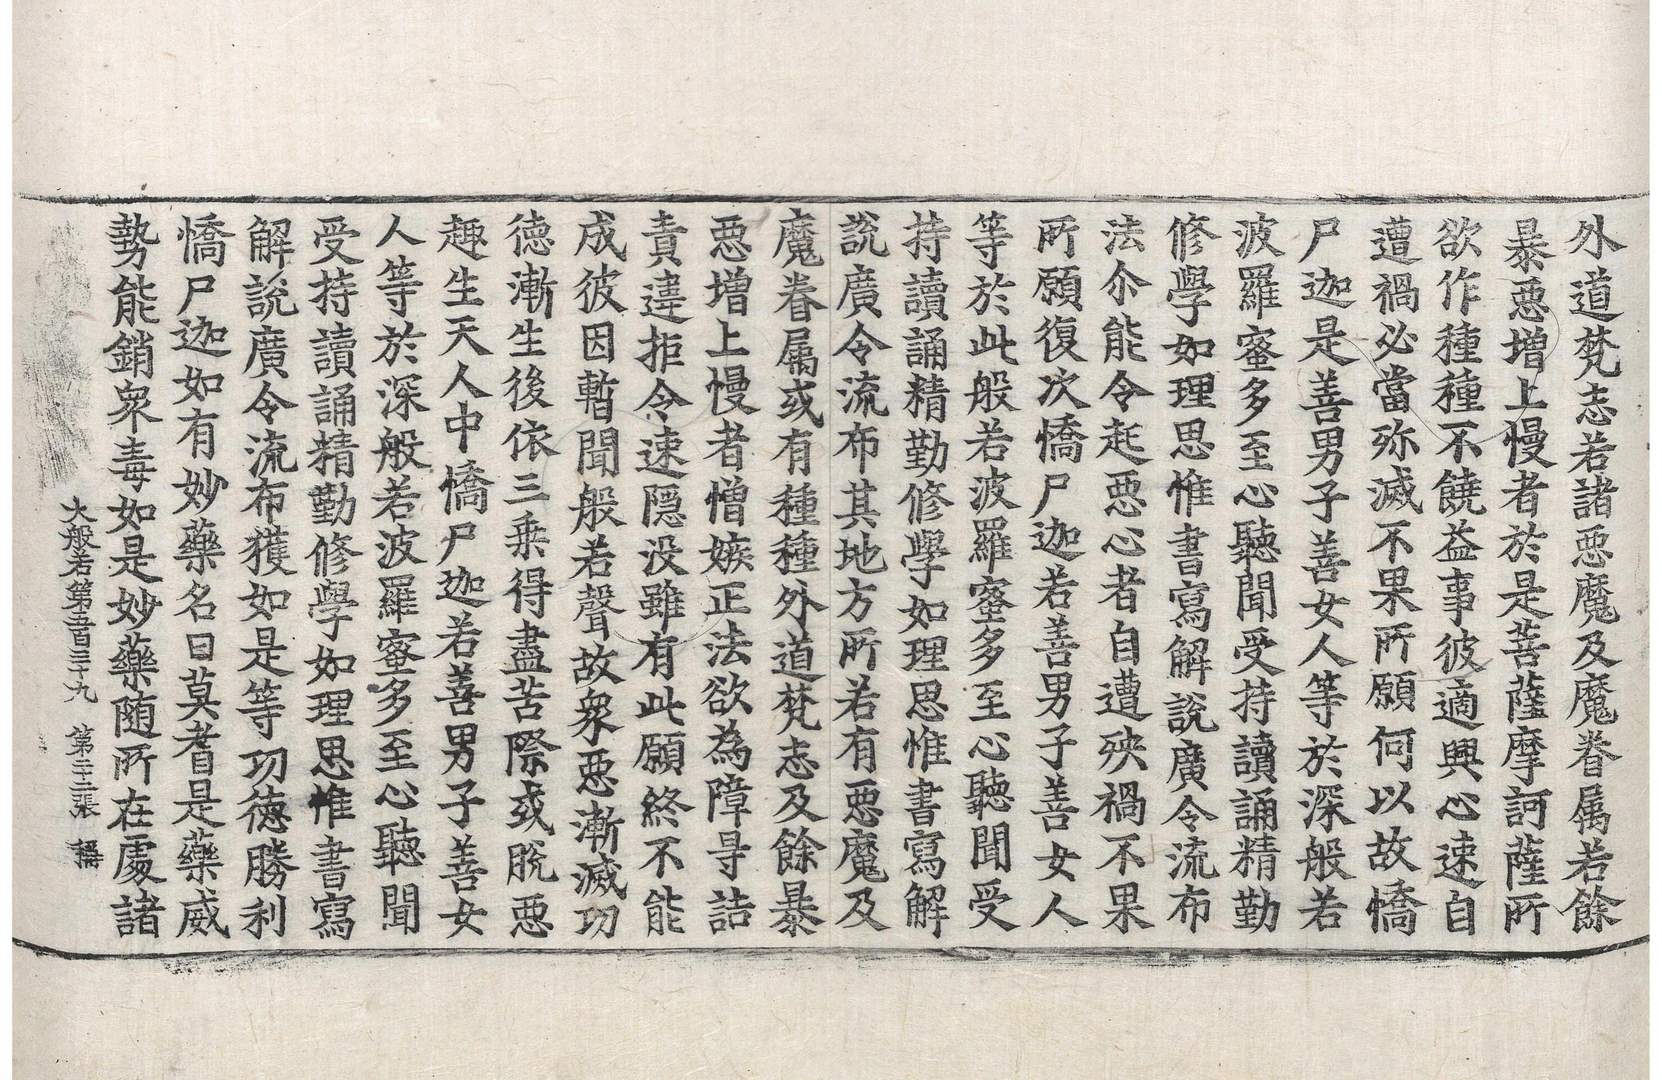 外道梵志若諸惡魔及魔眷属若餘
暴惡增上慢者於是菩薩摩訶薩所
欲作種種不饒益事彼適興心速自
遭禍必當弥滅不果所願何以故憍
尸迦是善男子善女人等於深般若
波羅蜜多至心聽聞受持讀誦精勤
修學如理思惟書寫解說廣令流布
法尒能令起惡心者自遭殃禍不果
所願復次憍尸迦若善男子善女人
等於此般若波羅蜜多至心聽聞受
持讀誦精勤修學如理思惟書寫解
說廣令流布其地方所若有惡魔及
魔眷属或有種種外道梵志及餘暴
惡增上慢者憎嫉正法欲為障㝵詰
責違拒令速隱没雖有此願終不能
成彼因暫聞般若聲故衆惡漸滅功
德漸生後依三乗得盡苦際或脫惡
趣生天人中憍尸迦若善男子善女
人等於深般若波羅蜜多至心聽聞
受持讀誦精勤修學如理思惟書寫
解說廣令流布獲如是等功德勝利
憍尸迦如有妙藥名曰莫耆是藥威
勢能銷衆毒如是妙藥随所在處諸
大般若第五百三十九 第二十三張